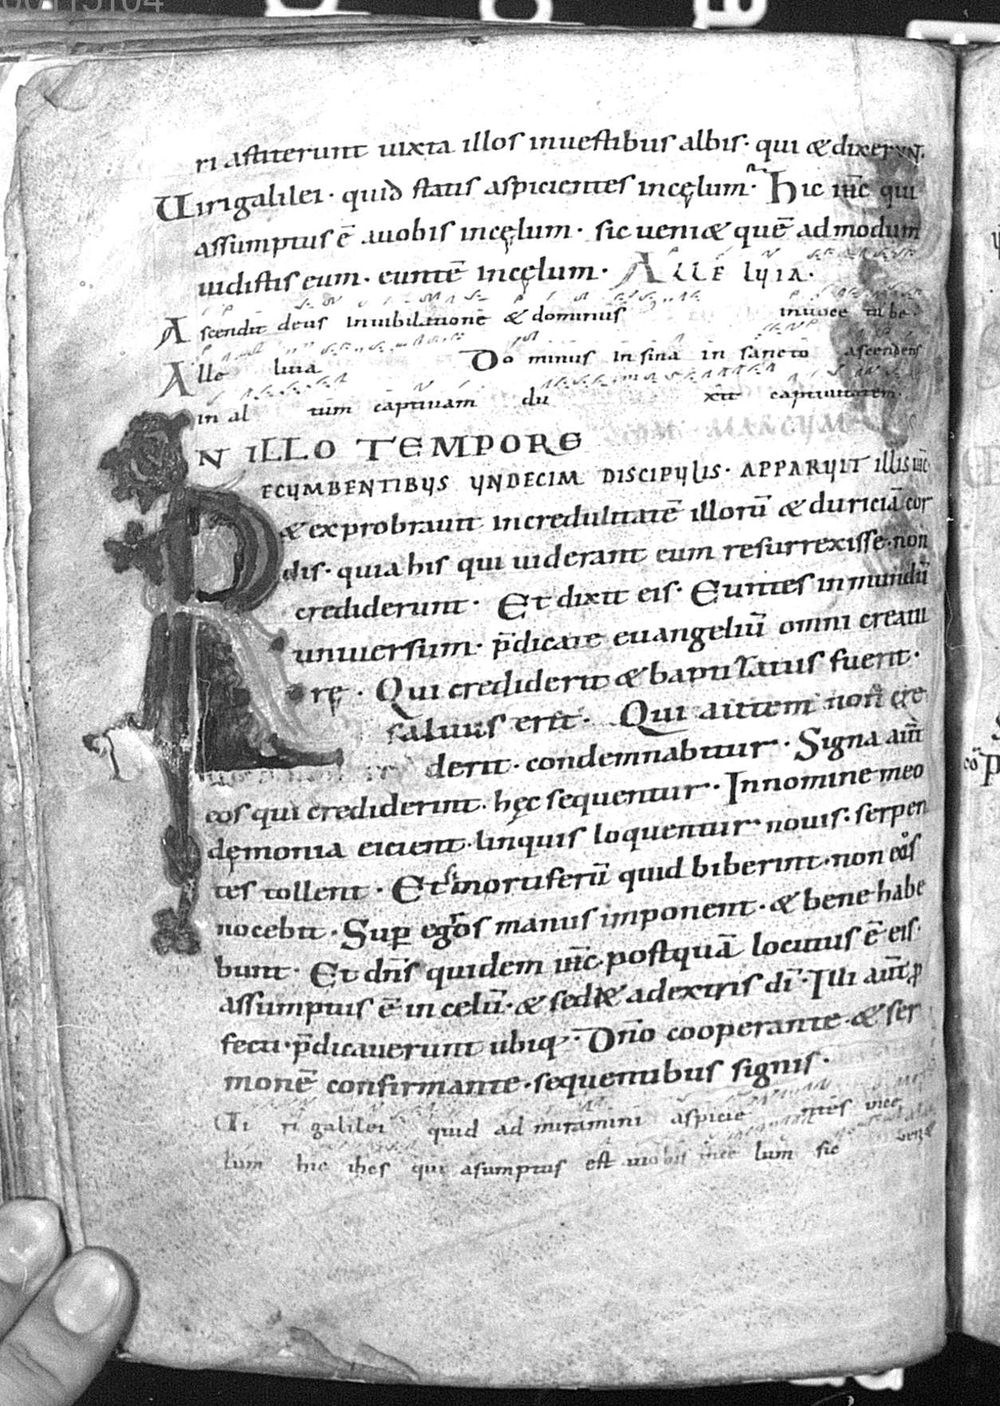 ri astiterunt iuxta illos inuestibus albis· qui & dixerunt.
Uirigalilei· quid statis aspicientes incęlum· hic iħc qui
assumptus ē auobis incęlum· sic ueni& quē admodum
uidistis eum· euntē incęlum· ALLE lųia·
Ascendit deus Iniubilatione & dominus inuoce tube
Alle luia Do minus In sina in sancto ascendens
in al tum captiuam du xit captiuitatem·
IN ILLO TEMPORE
RECUMBENTIBUS UNDECIM DISCIPULIS· APPARUIT illis iħc
& exprobrauit incredulitatē illorū & duriciā cor
dis· quia his qui uiderant eum resurrexisse· non
crediderunt· Et dixit eis· Euntes in mundū
uniuersum· p̄dicate euangeliū omni creatu
rę· Qui crediderit & baptizatus fuerit·
saluus erit· Qui autem non cre
derit· condemnabitur· Signa aut̄
eos qui crediderint· hęc sequentur· Innomine meo
dęmonia eicient· linquis loquentur nouis· serpen
tes tollent· Et si mortiferū quid biberint· non eos
nocebit· Sup̱ egros manus imponent· & bene habe
bunt· Et dn̄s quidem iħc postquā locutus ē eis·
assumptus ē in celū· & sed& adextris dī· Illi aut̄ p̱
fecti· p̄dicauerunt ubiq· Dn̄o cooperante· & ser
monē confirmante· sequentibus signis·
Ui ri galilei quid ad miramini aspicie ntes ince
lum hic ihes qui asumptus est uobis ince lum sic ueni&